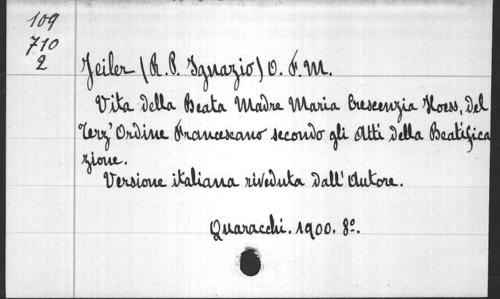 109
710
2
Jeiler (R. P. Ignazio) O. F. M.
Vita della Beata Madre Maria Crescenzia Hoess, del
Terz' Ordine Francescano secondo gli Atti della Beatifica
zione.
Versione italiana riveduta dall' Autore.
Quaracchi. 1900. 8º.